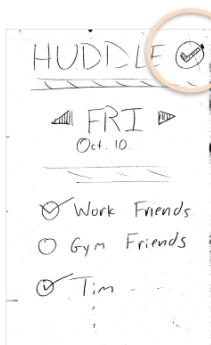 HUDDLE
FRI
Oct. 10.
Work Friends
Gym Friends
Tim